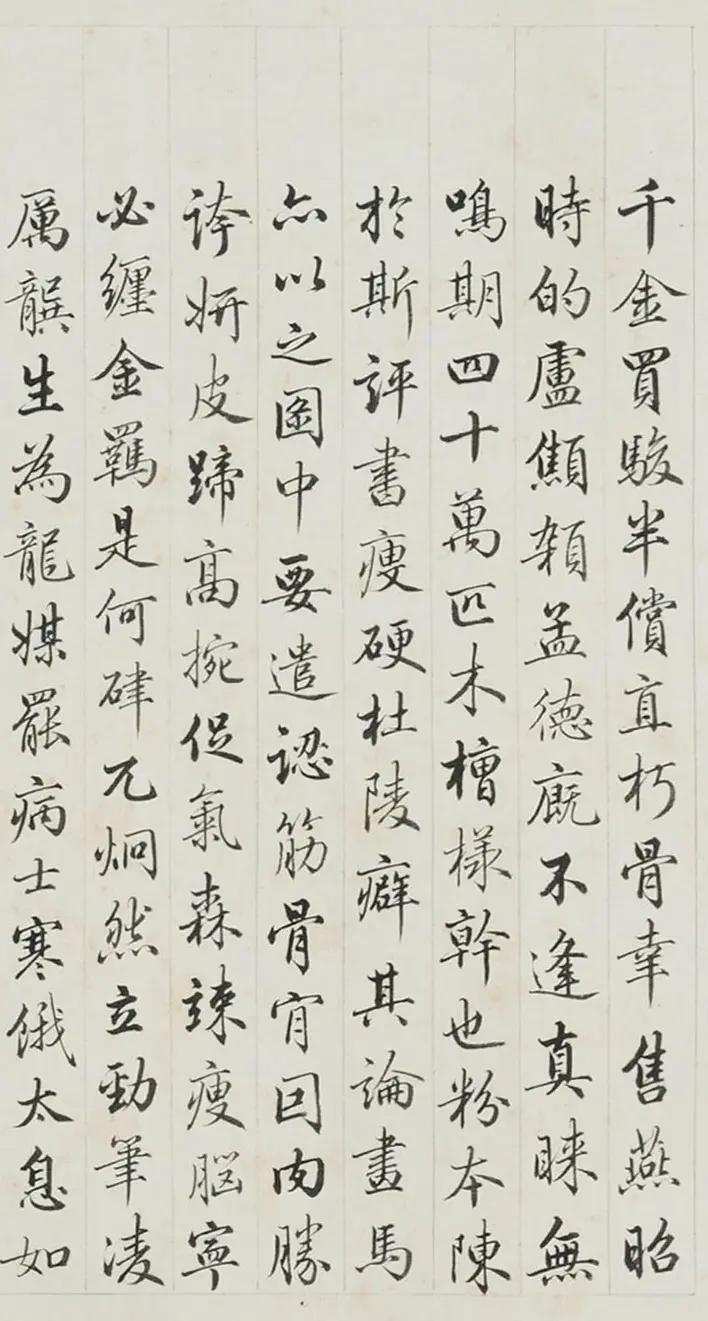 千金買駿半償直朽骨幸售燕昭
時的盧顦顇孟德廄不逢真睞無
鳴期四十萬匹木槽樣幹也粉本陳
於斯評書瘦硬杜陵癖其論畫馬
亦以之圖中要遣認筋骨肎因肉勝
誇妍皮蹄高捥促氣森竦瘦腦寧
必纏金羈是何硉兀炯然立勁筆凌
厲龔生為龍媒罷病士寒餓太息如